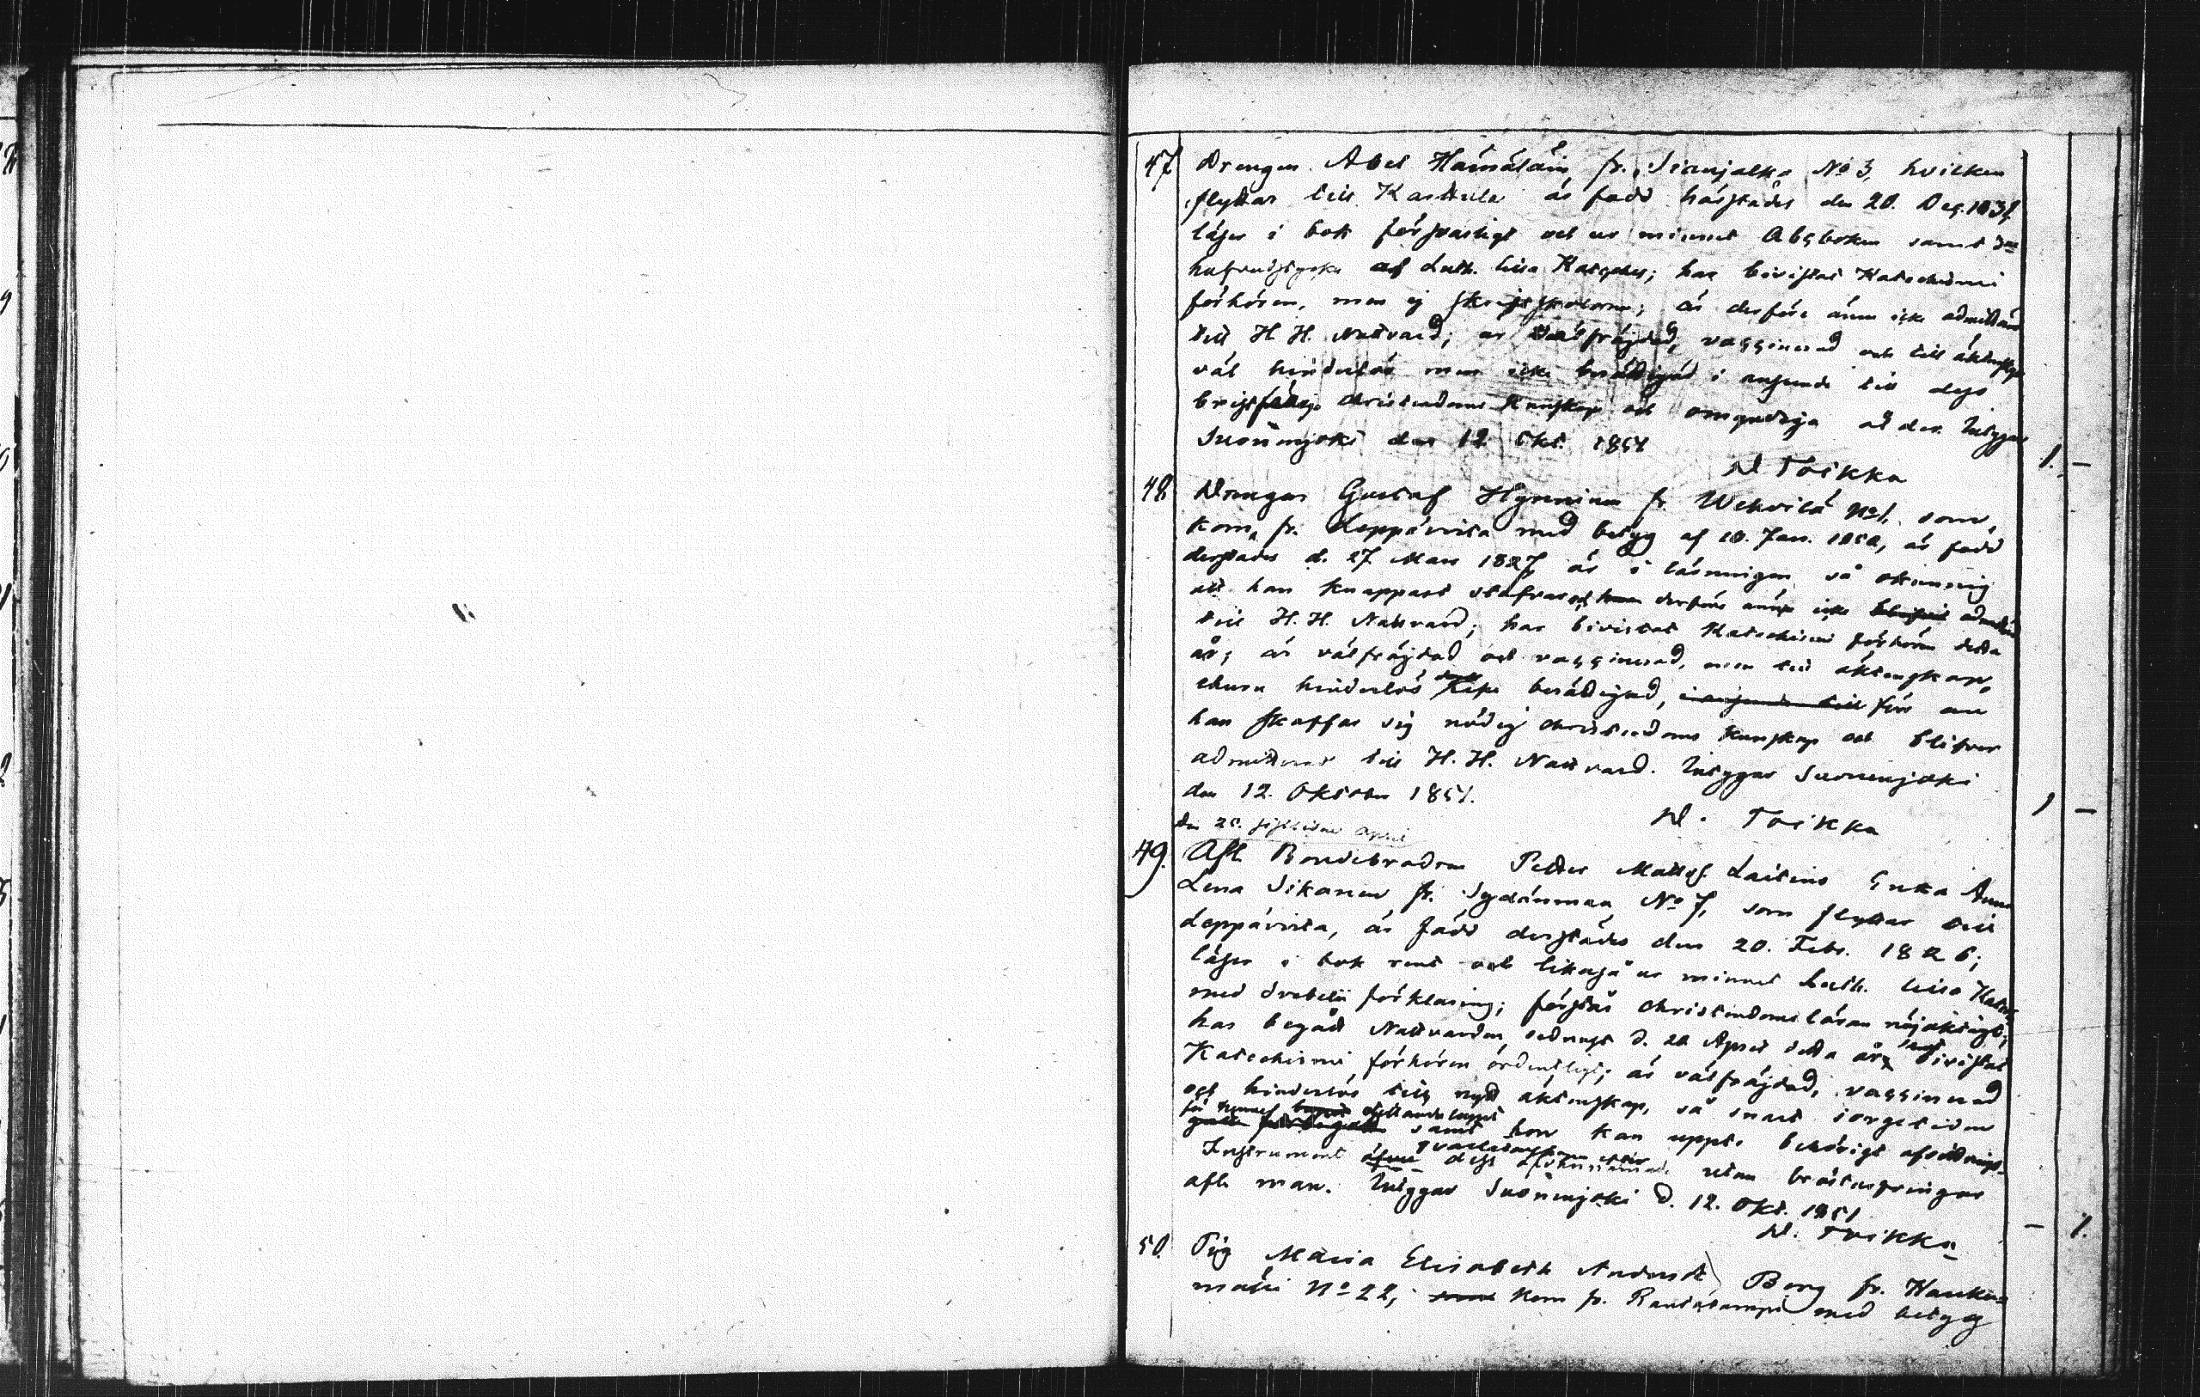 47 Drengen Abel Hämäläin fr. Sianjalka No 3, hvilken
flyttar till Karttula är född härstädes den 20. Dec. 1831,
läser i bok försvarligt och ur minnet Abcboken samt 3ne
hufvudstycke af Luth. lilla Kateches; har bevistat Katechismi
förhören, men ej skriftskolorne; är derföre ännu icke admitterad
till H. H. Nattvard; är välfräjdad, vaccinerad och till äktenskap
väl hinderlös men icke berättigad i anseende till dess
bristfällige christendoms kunskap och omyndiga ålder. Intygar
Suonnenjoki den 12 Okt. 1851
D Toikka
1. –
48 Drengen Gustaf Hynninen fr. Wehvilä No 1. som,
kom fr. Leppävirta med betyg af 10. Jan. 1850, är född
derstädes d. 27 Mars 1827, är i läsningen så okunnig
att han knappast stafvar och derföre ännu icke admitterad
till H. H. Nattvard; har bevistat Katechismi förhören detta
år; är välfräjdad och vaccinerad, men till äktenskap,
ehuru hinderlös dock icke berättigad, i anseende till förr än
han skaffar sig nödig christendoms kunskap och blifver
admitterad till H. H. Nattvard. Intygar Suonnenjoki
den 12. Oktober 1851.
D. Toikka
1 –
den 20. sistlidne April
49. Afl. Bondebrodren Petter Mattsf. Laitins Enka Anna
Lena Sikanen fr. Sydänmaa No 7, som flyttar till
Leppävirta, är född derstädes den 20. Febr. 1826;
läser i bok rent och likaså ur minnet Luth. lilla Katech.
med Svebelii förklaring; förstår christendoms läran nöjaktigt;
har begått Nattvarden sednast d. 20 April detta år, bevistat
Katechismi förhören ordentligt; är välfräjdad, vaccinerad
och hinderlös till nytt äktenskap, så snart sorgetiden
förrunnit samt hon kan uppte behörigt afvittrings-
Instrument öfver dess qvarlåtenskap efter utan bröstarfvingar
afl. man. Intygar Suonnenjoki d. 12. Okt. 1851
D. Toikka
– 1.
50. Pig. Maria Elisabeth Andersdr. Borg fr. Hanka-
mäki No 22, som kom fr. Rautalampi med betyg